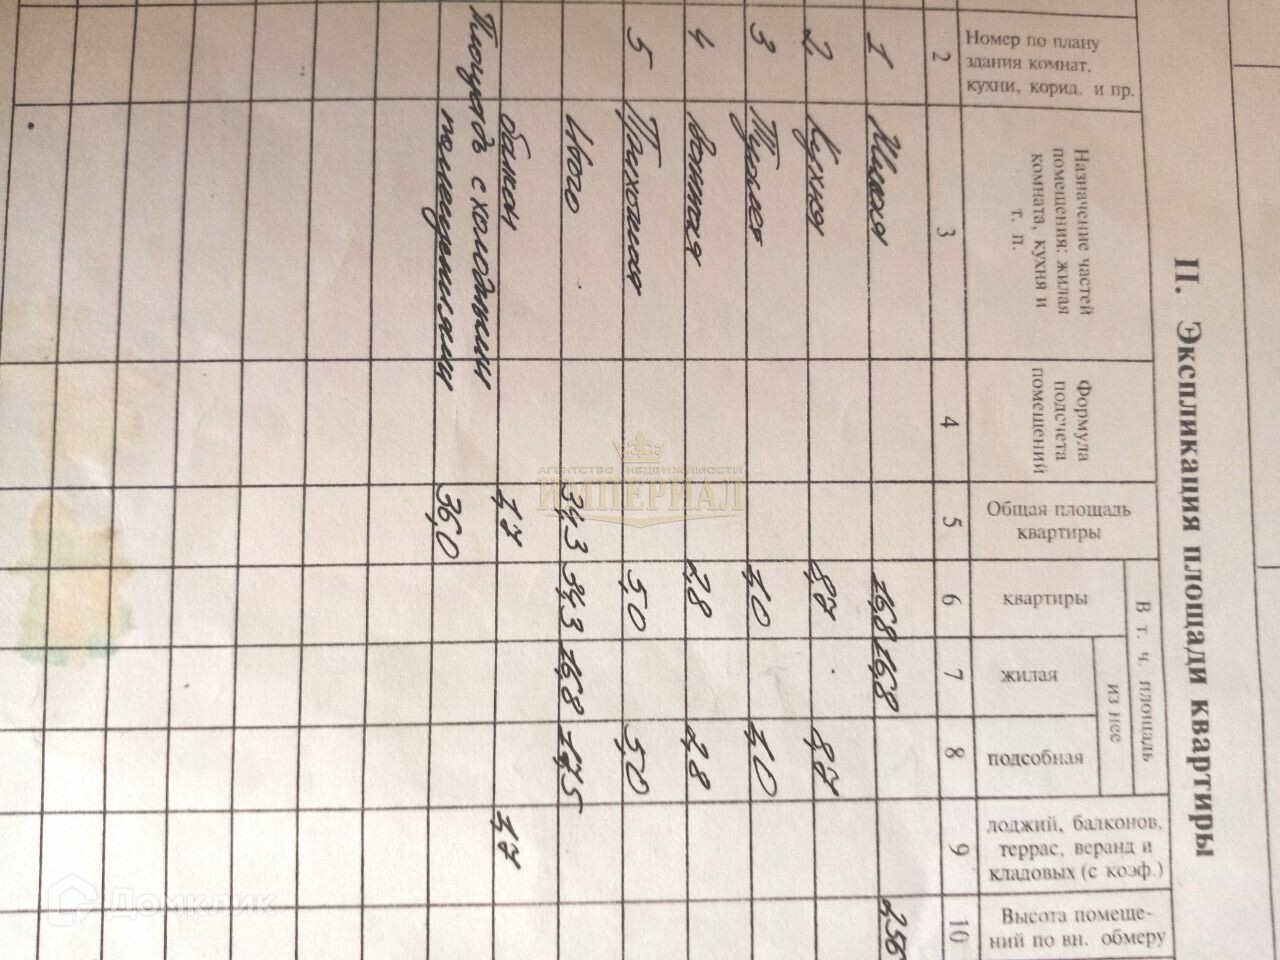 II. Экспликация площади квартиры
Номер по плану
здания комнат,
кухни, корид. и пр.
Назначение частей
помещения: жилая
комната, кухня и
т. п.
Формула
подсчета
помещений
Общая площадь
квартиры
В т. ч. площадь
квартиры
из нее
жилая
подсобная
лоджий, балконов,
террас, веранд и
кладовых (с коэф.)
Высота помеще-
ний по вн. обмеру
2 3 4 5 6 7 8 9 10
1 Жилая 16,8 16,8 2,56
2 Кухня 8,7 8,7
3 Туалет 1,0 1,0
4 Ванная 2,8 2,8
5 Прихожая 5,0 5,0
Итого 34,3 34,3 16,8 17,5
балкон 1,7 1,7
Площадь с холодными
помещениями 36,0
АГЕНТСТВО НЕДВИЖИМОСТИ
ИМПЕРИАЛ
Домклик